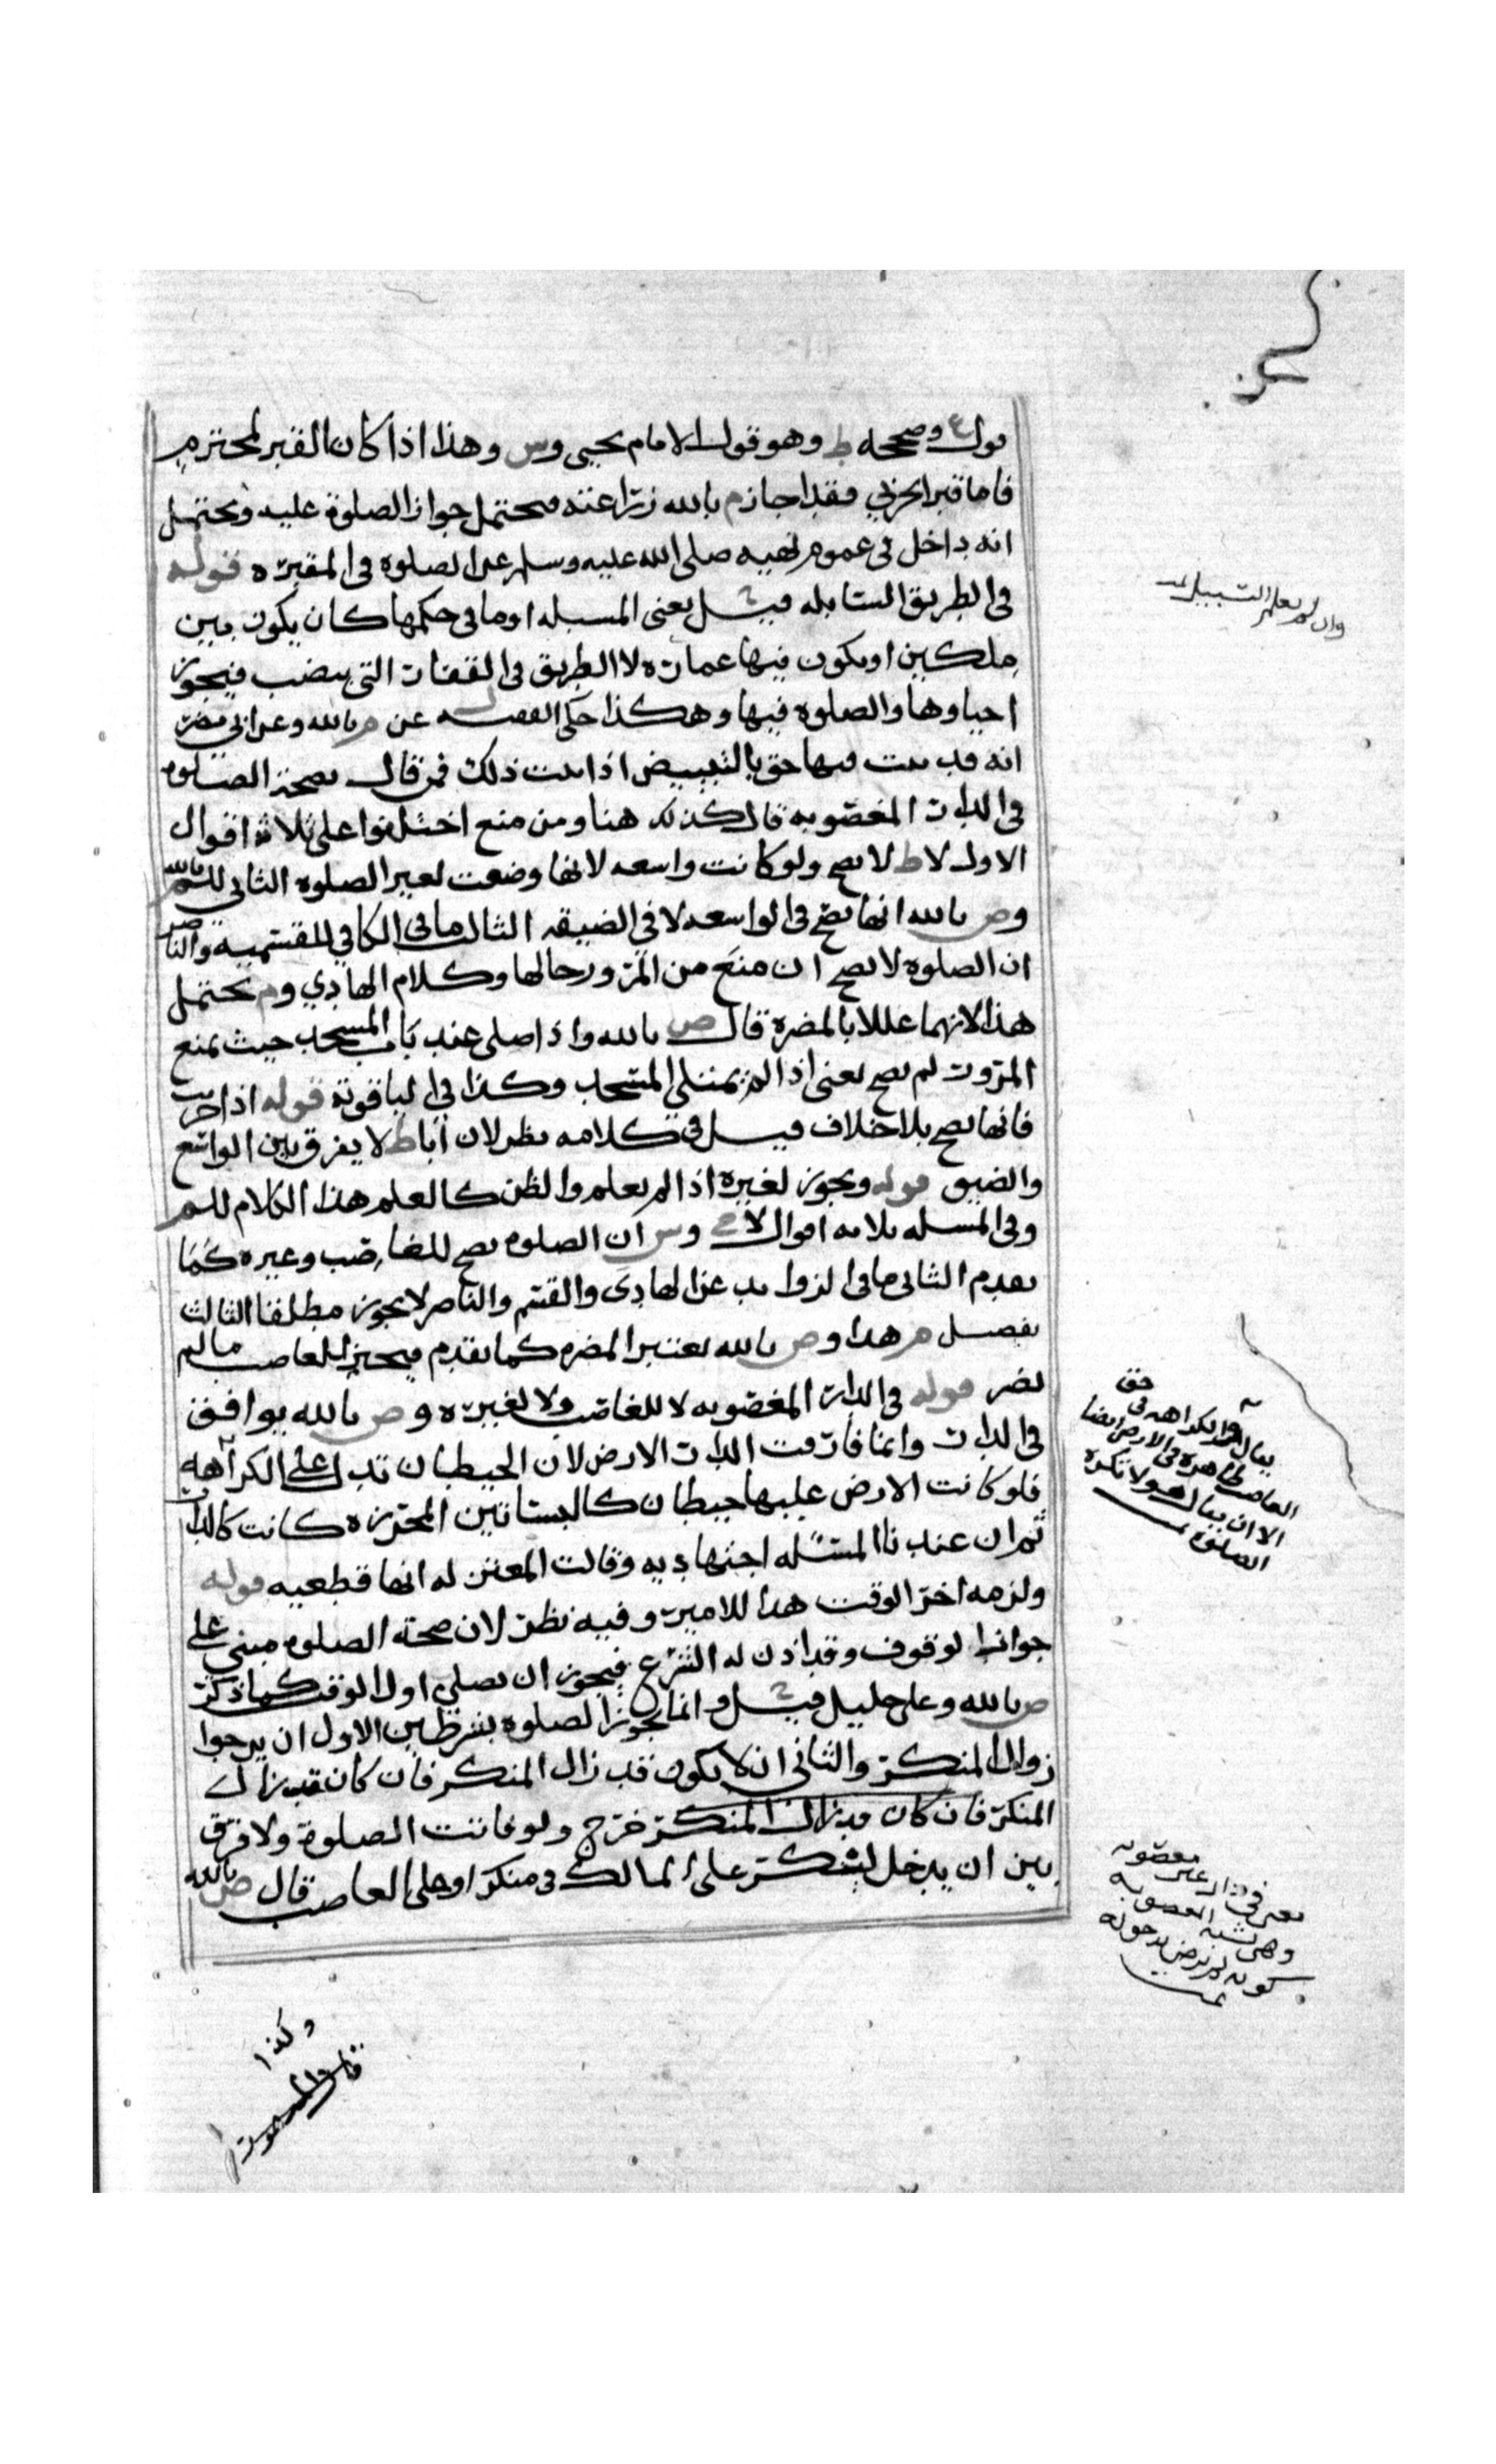 قول ع وصححه ط وهو قول الامام يحيى وس وهذا اذا كان القبر لمحترم
فاما قبر الحربي فقد اجاز م بالله زراعته فيحتمل جواز الصلوة عليه ويحتمل
انه داخل في عموم نهيه صلى الله عليه وسلم عن الصلوة في المقبره قوله
في الطريق السابله قيل يعنى المسبله او ما في حكمها كان يكون بين
ملكين او يكون فيها عماره لا الطريق في القفار التي فيجوز
احياوها والصلوة فيها وهكذا حكى الفقيه ل عن م بالله وعن ابي مضر
انه قد ثبت فيها حق اذا ثبت ذلك فمن قال بصحة الصلوة
في الدار المغصوبه قال كذلك هنا ومن منع اختلفوا على ثلاثة اقوال
الاول لا ط لا يصح ولو كانت واسعه لانها وضعت لغير الصلوة الثاني للم بالله
وص بالله انها تصح في الواسعه لا في الضيقه الثالث ما في الكافي للقسميه والناصر
ان الصلوة لا تصح ان منع من المرور حالها وكلام الهادي وم يحتمل
هذا لانهما عللا بالمضره قال ص بالله واذا صلى عند باب المسجد حيث يمنع
المرور لم يصح يعنى اذا لم يمتلي المسجد وكذا في الياقوتة قوله اذا خربت
فانها تصح بلا خلاف قيل في كلامه نظر لان اباط لا يفرق بين الواسع
والضيق قوله ويجوز لغيره اذا لم يعلم والظن كالعلم هذا الكلام للم
وفي المسله ثلاثه اقوال لاح وس ان الصلوة تصح للغاصب وغيره كما
تقدم الثاني ما في الزوايد عن الهادي والقسم والناصر لا يجوز مطلقا الثالث
تفصيل م هذا وص بالله يعتبر المضره كما تقدم فيجيز للغاصب ما لم
يضر قوله في الدار المغصوبه لا للغاصب ولا لغيره وص بالله يوافق
في الدار وانما فارقت الدار الارض لان الحيطان تدل على الكراهه
فلو كانت الارض عليها حيطان كالبساتين المحرزه كانت كالدار
ثم ان عندنا المسئله اجتهاديه وقالت المعتزله انها قطعيه قوله
ولزمه اخر الوقت هذا للامير وفيه نظر لان صحة الصلوة مبنى على
جواز الوقوف وقد اذن له الشرع فيجوز ان يصلي اول الوقت كما ذكر
ص بالله وعلي خليل قيل وانما تجوز الصلوة بشرطين الاول ان يرجوا
زوال المنكر والثاني ان لا يكون قد زال المنكر فان كان قد زال
المنكر فان كان قد زال المنكر خرج ولو فاتت الصلوة ولا فرق
بين ان يدخل لينكر على المالك في منكر او على الغاصب قال ص بالله
وان لم يعلم التسبيل
يقال والكراهه في حق
الغاصب ظاهرة في الارض ايضا
الا ان يقال هو لا تكره
الصلوة
يعني في دار غير مغصوبه
وهي تشبه المغصوبه
كونه لم يرض بدخوله
وكذا